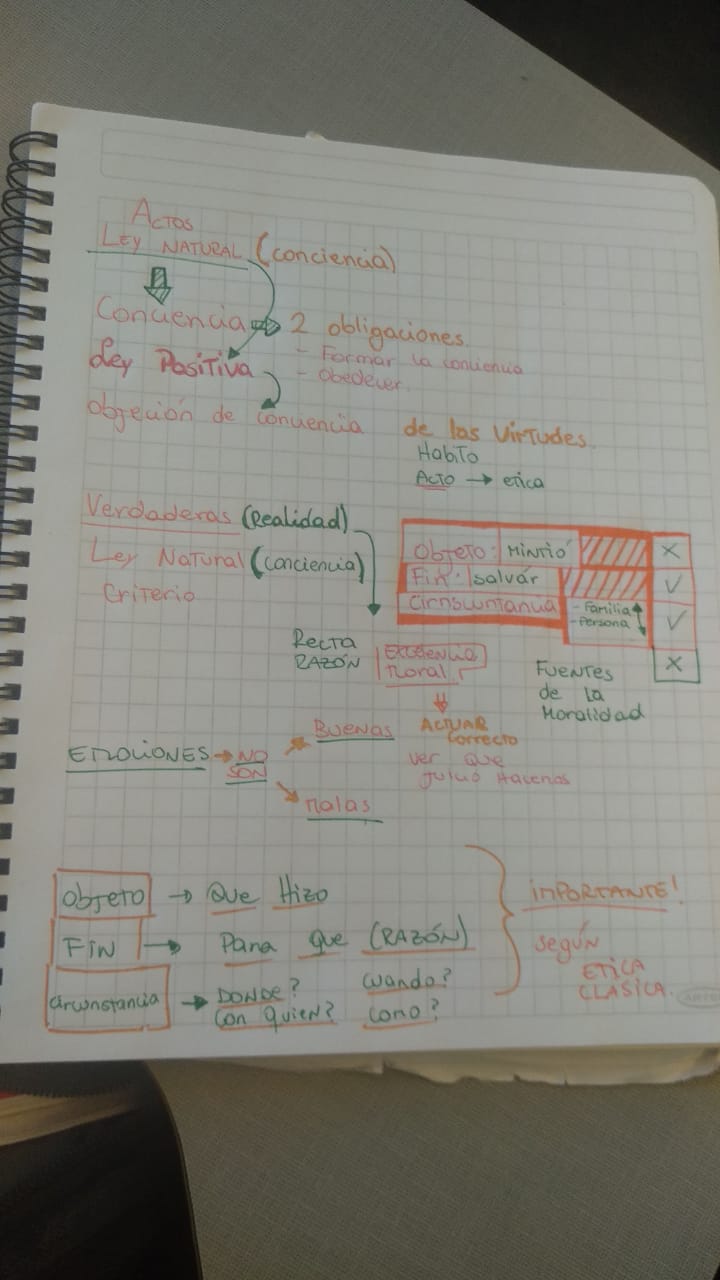 Actos
Ley NATURAL (conciencia)
Conciencia 2 obligaciones.
- Formar la conciencia
Ley Positiva - Obedecer.
objeción de conciencia
de las Virtudes.
Habito
Acto → etica
Verdaderas (Realidad)
Ley Natural (conciencia)
Criterio
Objeto: MINTIÓ X
Fin: Salvar ✓
Circnsuntancia - Familia - Persona ✓
X
Recta RAZÓN
Moral
Fuentes de la Moralidad
ACTUAR Correcto
ver que juicio Hacemos
EMOCIONES → NO SON
Buenas
Malas
Objeto → Que Hizo
FIN → Para que (RAZÓN)
circunstancia → DONDE? cuando?
con quien? como?
imPORTANTE!
según
ETICA
CLASICA.